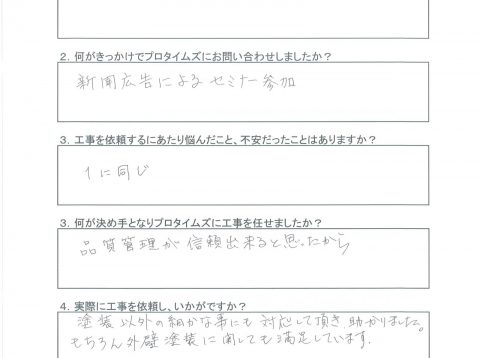 2. 何がきっかけでプロタイムズにお問い合わせしましたか？
新聞広告によるセミナー参加
3. 工事を依頼するにあたり悩んだこと、不安だったことはありますか？
1に同じ
3. 何が決め手となりプロタイムズに工事を任せましたか？
品質管理が信頼出来ると思ったから
4. 実際に工事を依頼し、いかがですか？
塗装以外の細かな事にも対応して頂き助かりました。
もちろん外壁塗装に関しても満足しています。